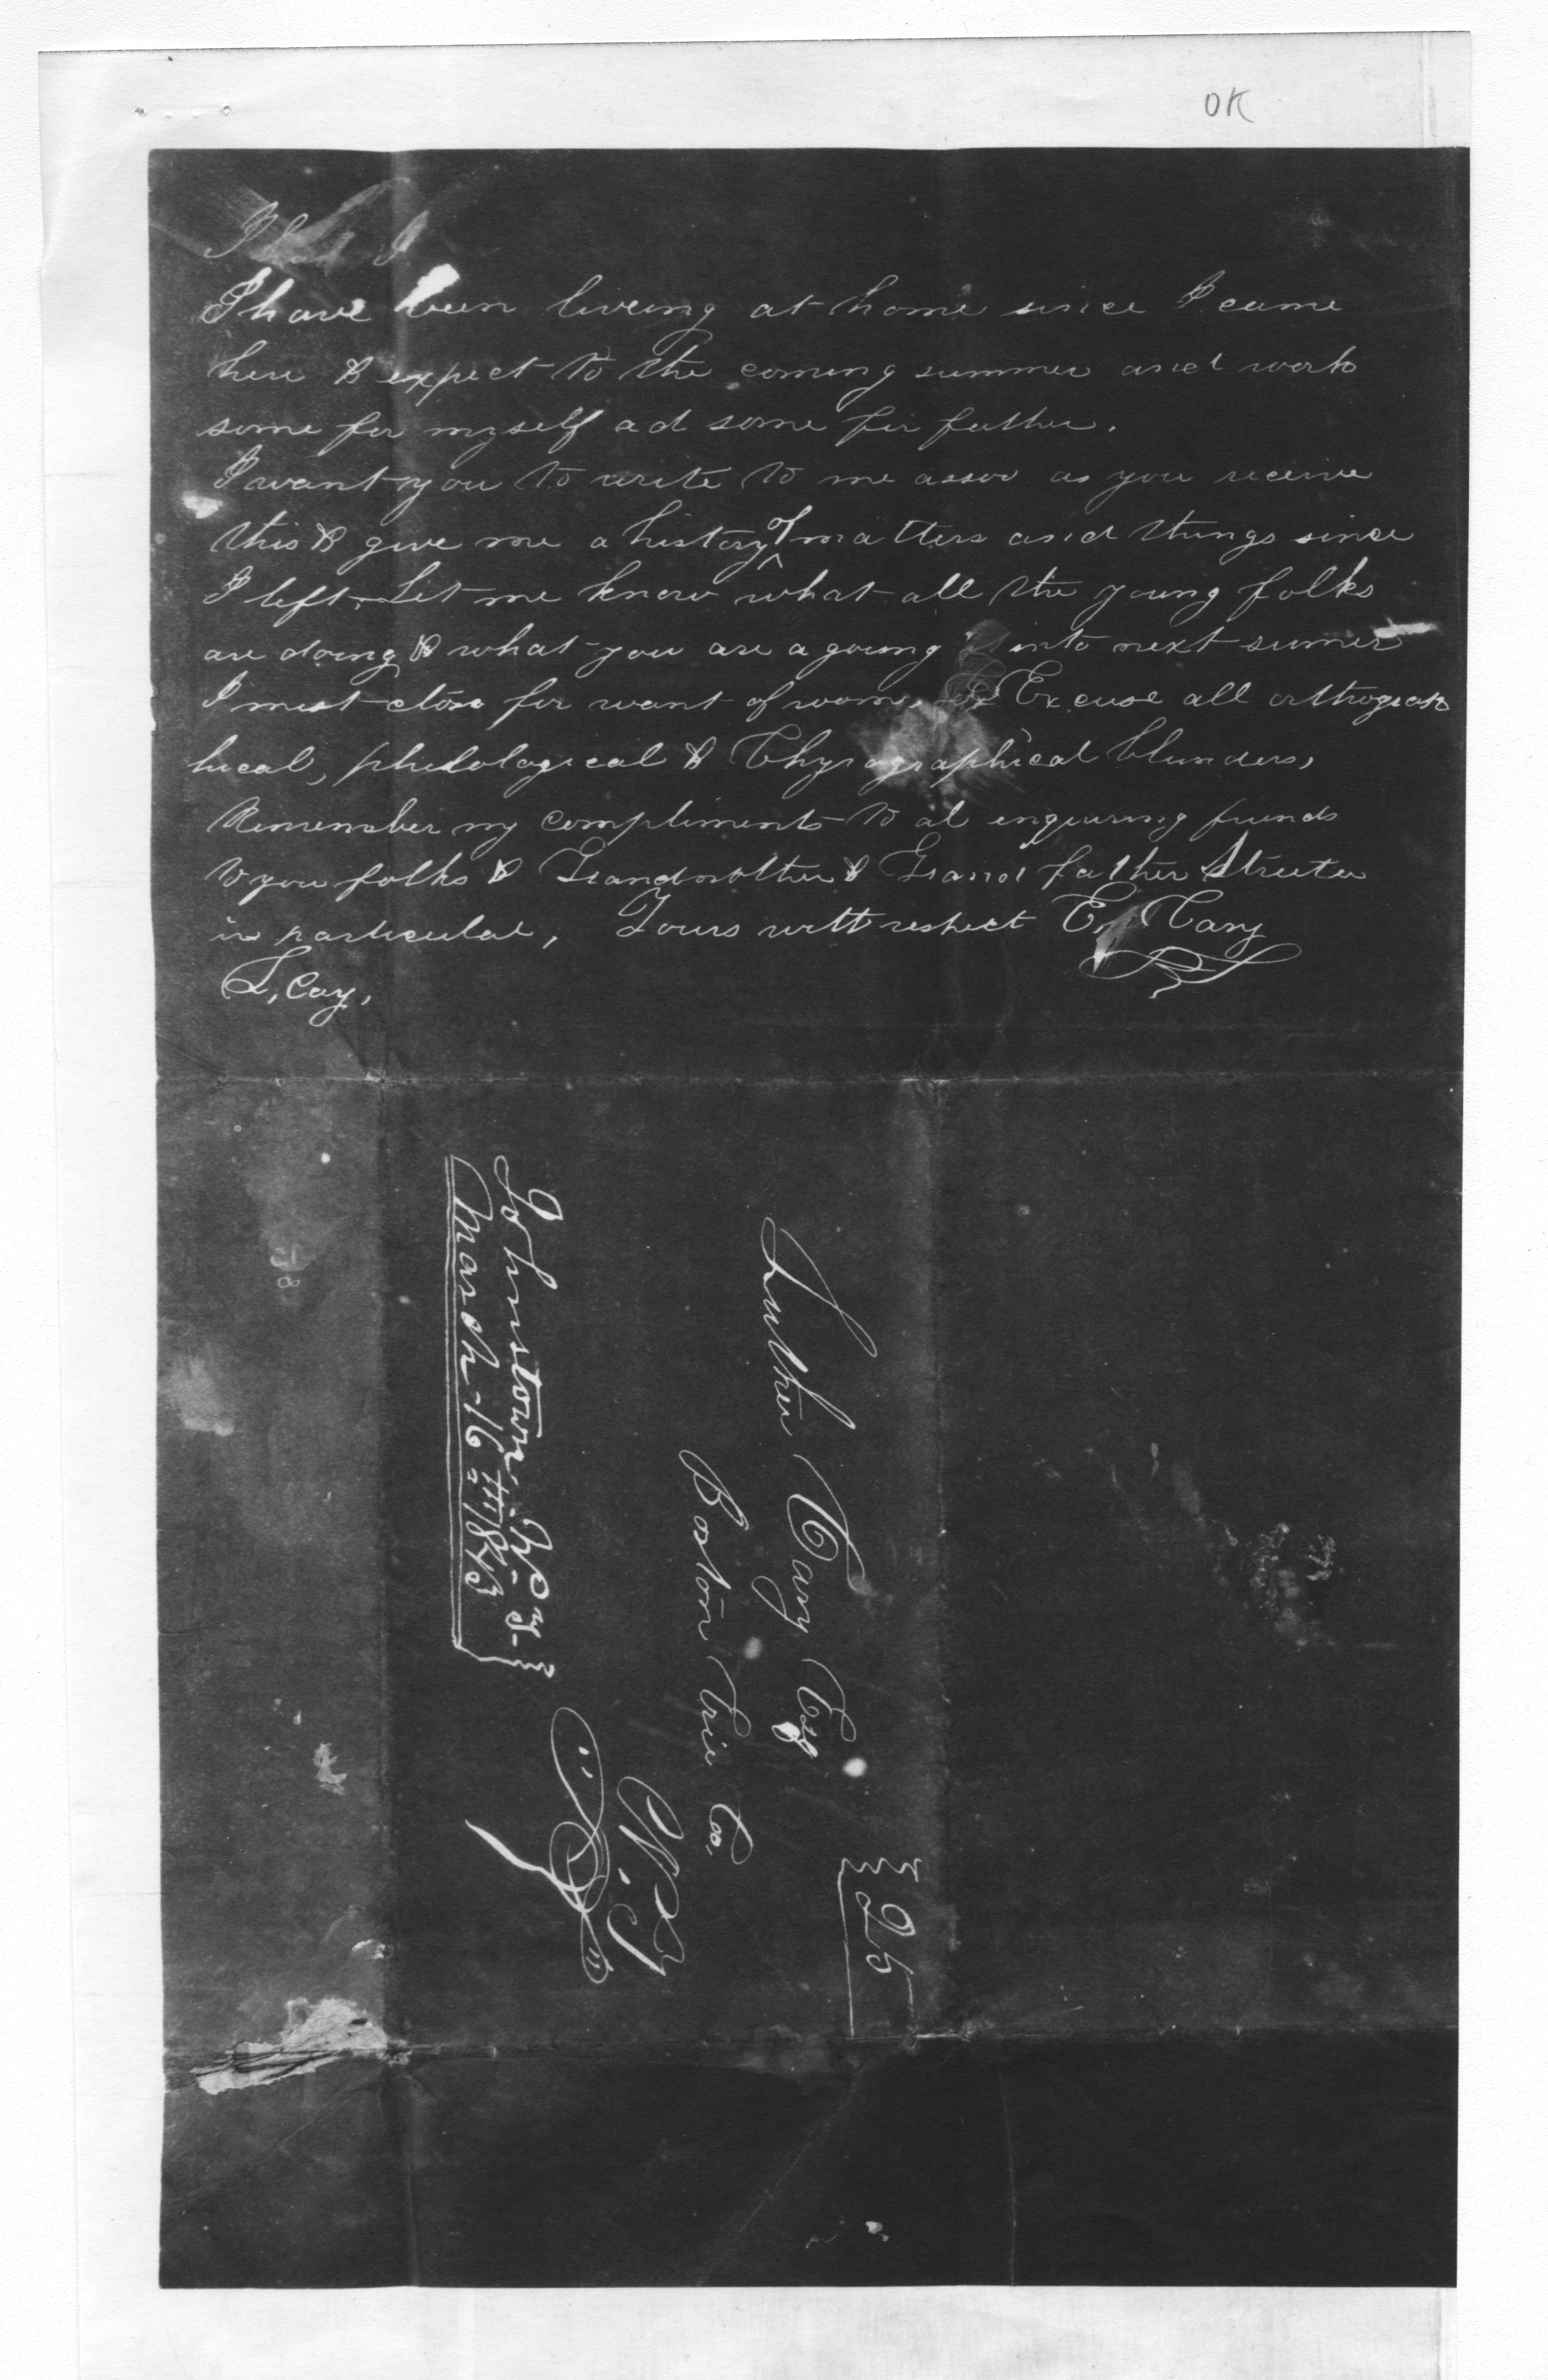 OK
I have been liveing at home since I came
here & expect to the coming summer and work
some for myself ad some for father.
I want you to write to me assoo as you receive
this & give me a history of matters and things since
I left. Let me know what all the young folks
are doing & what you are a goung into next sumer
I must close for want of room, Excuse all orthograp
hical, philological & Chyrographical blunders,
Remember my compliments to al enquiring friends
to you folks & Grandmother & Grand father Streeter
in particular, Yours with respect E. Cary
L, Cay,
Johnstown. W. T.
March 16th 1843
25
Luther Cary Esq
Boston Erie Co,
N. Y